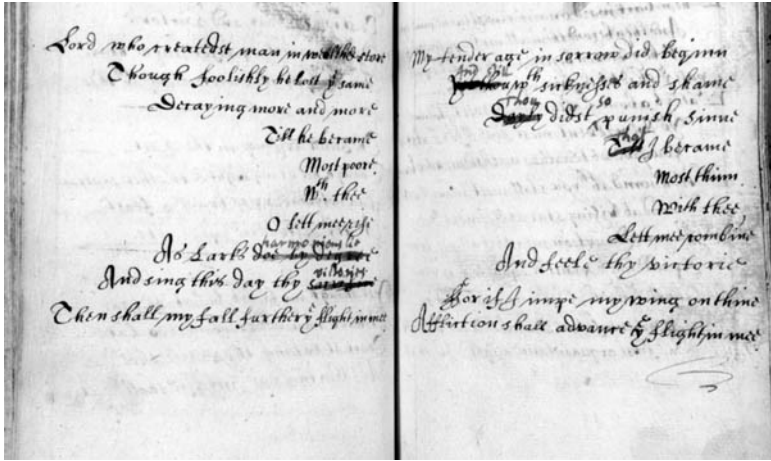 Lord who createdst man in wealth & store
Though foolishly he lost yᵉ same
Decaying more and more
Till he became
Most poore
Wth thee
O lett mee rise
harmoniouslie
As Larks doe by degree
victories
And sing this day thy
Then shall my fall further yᵉ flight in mee
My tender age in sorrow did beginn
And still
wth sicknesses and shame
Thou so
didst punish sinne
That
Till I became
Most thinn
With thee
Lett mee combine
And feele thy victorie
For if I impe my wing on thine
Affliction shall advance yᵉ flight in mee